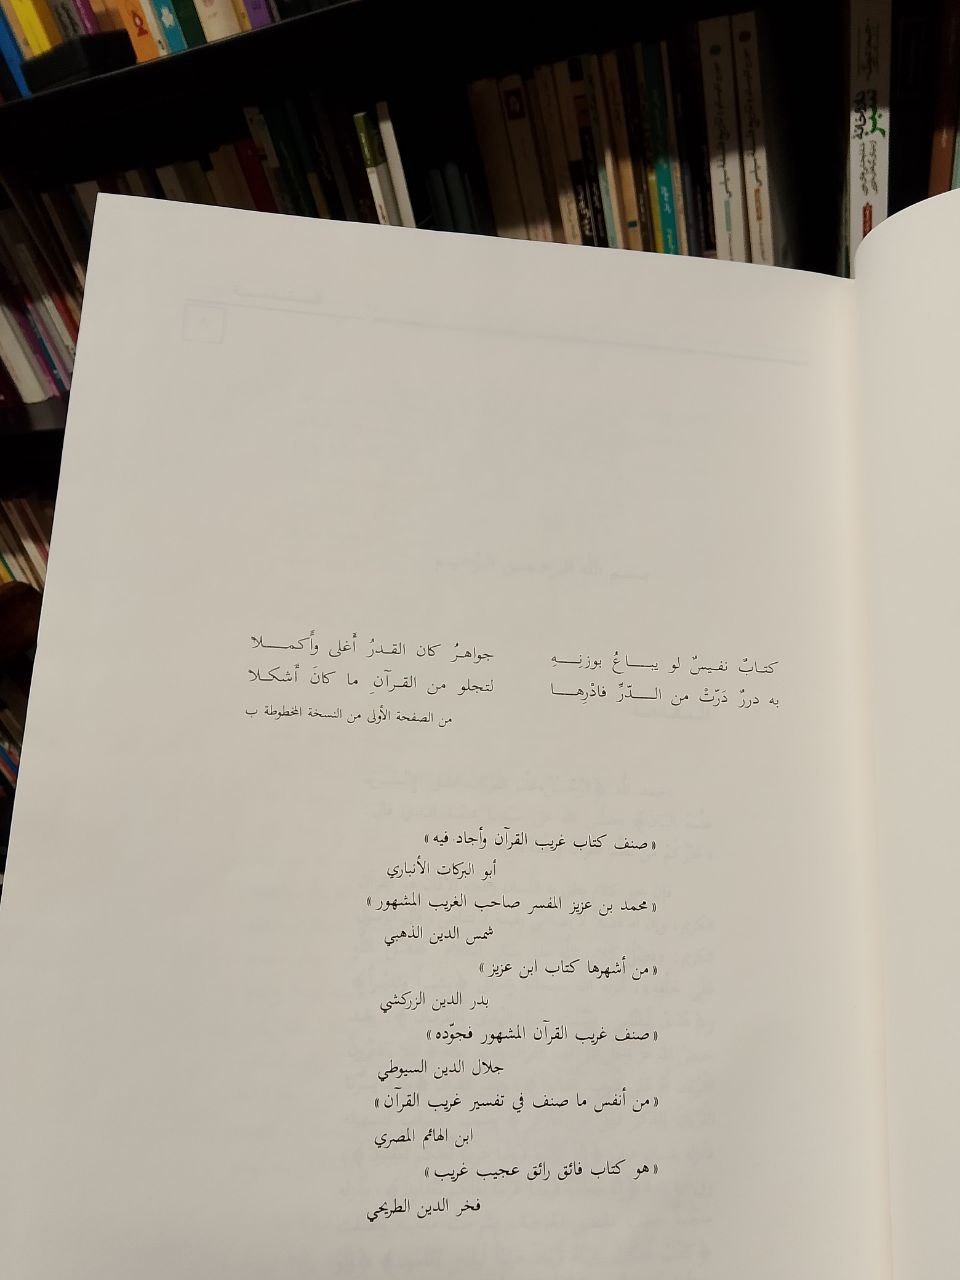 كتـابٌ نفـيسٌ لو يبـــاعُ بوزنـــهِ جواهـرُ كان القـدرُ أَغلى وأَكمـــــلا
به دررٌ دَرّتْ من الـــدّرِّ فادْرِهـــا لتجلو من القـرآنِ ما كانَ أَشكـلا
من الصفحة الأولى من النسخة المخطوطة ب
« صنف كتاب غريب القرآن وأجاد فيه »
أبو البركات الأنباري
« محمد بن عزيز المفسر صاحب الغريب المشهور »
شمس الدين الذهبي
« من أشهرها كتاب ابن عزيز »
بدر الدين الزركشي
« صنف غريب القرآن المشهور فجوّده »
جلال الدين السيوطي
« من أنفس ما صنف في تفسير غريب القرآن »
ابن الهائم المصري
« هو كتاب فائق رائق عجيب غريب »
فخر الدين الطريحي